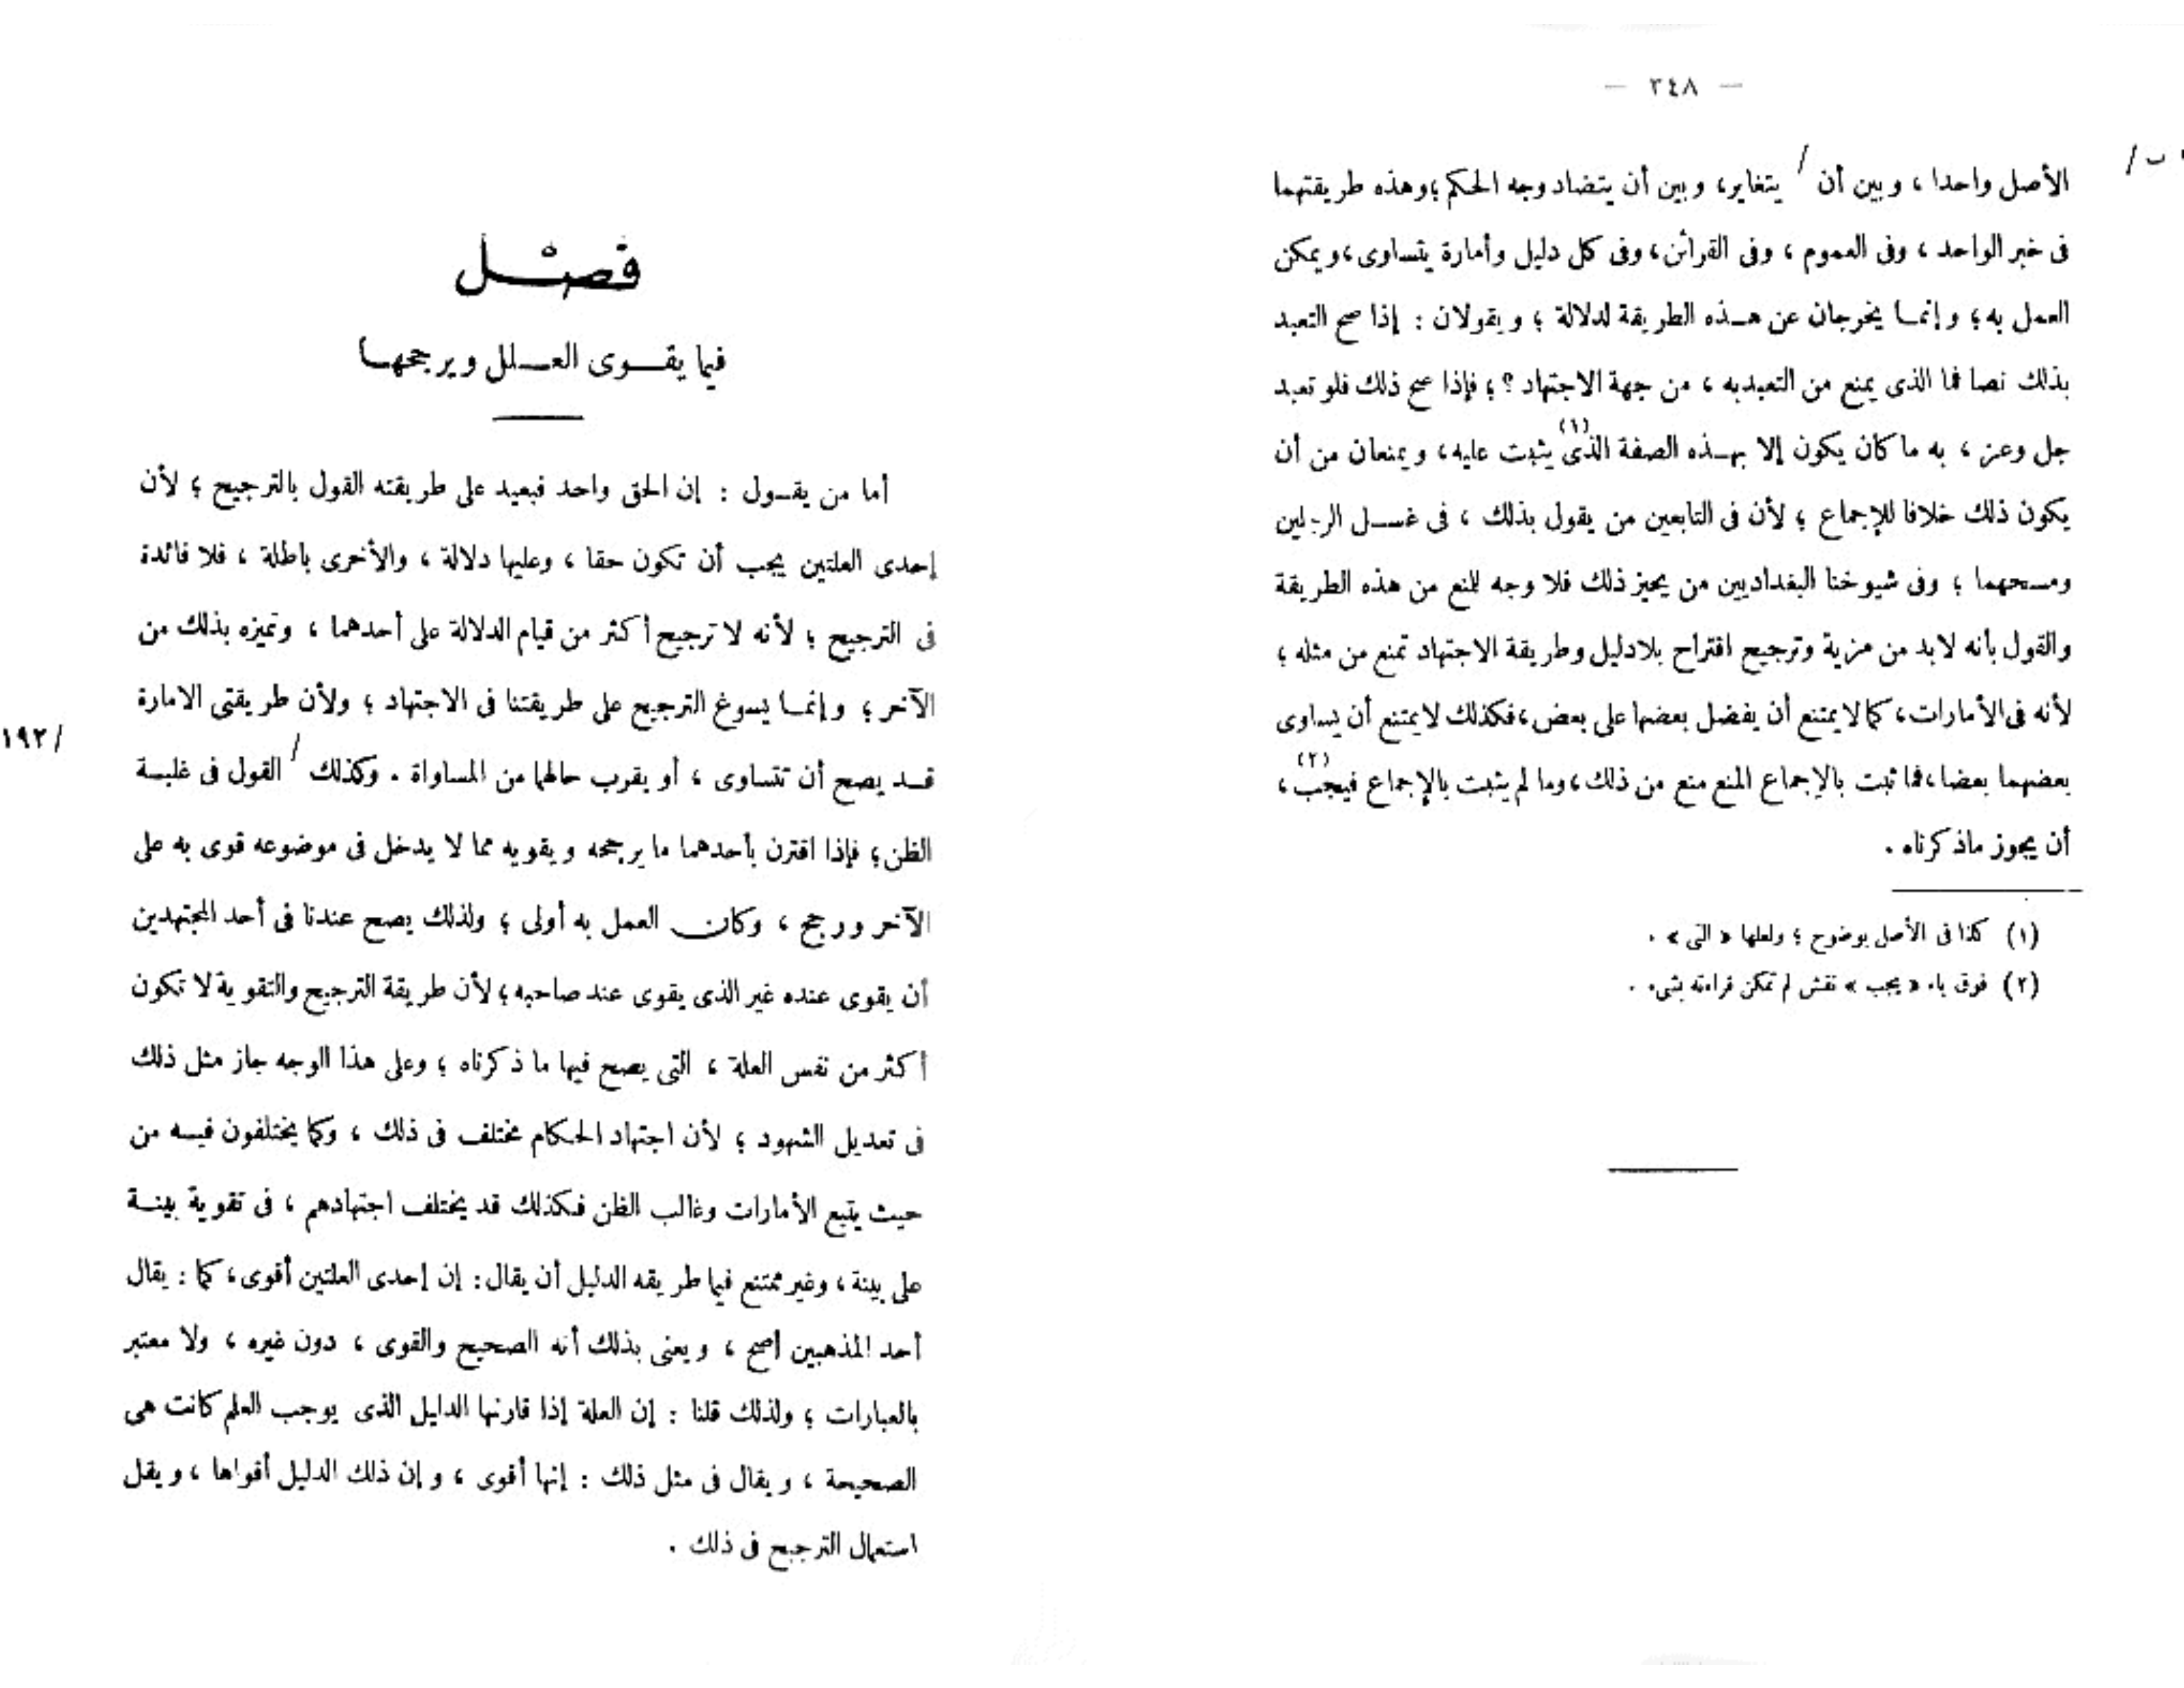 — ٣٤٨ —
ب /
الأصل واحدا ، وبين أن / يتغاير، وبين أن يتضاد وجه الحكم ؛ وهذه طريقتهما
فى خبر الواحد ، وفى العموم ، وفى القرائن، وفى كل دليل وأمارة يتساوى، ويمكن
العمل به ؛ وإنمـا يخرجان عن هـذه الطريقة لدلالة ؛ ويقولان : إذا صح التعبد
بذلك نصا فما الذى يمنع من التعبدبه ، من جهة الاجتهاد ؟ ؛ فإذا صح ذلك فلو تعبد
جل وعز ، به ما كان يكون إلا بهـذه الصفة الذى (١) يثبت عليه، ويمنعان من أن
يكون ذلك خلافا للإجماع ؛ لأن فى التابعين من يقول بذلك ، فى غسـل الرجلين
ومسحهما ؛ وفى شيوخنا البغداديين من يجيز ذلك فلا وجه للمنع من هذه الطريقة
والقول بأنه لابد من مزية وترجيح اقتراح بلادليل وطريقة الاجتهاد تمنع من مثله ؛
لأنه فى الأمارات، كما لا يمتنع أن يفضل بعضها على بعض، فكذلك لا يمتنع أن يساوى
بعضهما بعضا، فما ثبت بالإجماع المنع منع من ذلك، وما لم يثبت بالإجماع فيجب (٢) ،
أن يجوز ماذكرناه .
(١) كذا فى الأصل بوضوح ؛ ولعلها « التى » .
(٢) فوق ياء « يجب » نقش لم تمكن قراءته بشىء .
فصـل
فيما يقـوى العـلل ويرجحهـا
أما من يقـول : إن الحق واحد فبعيد على طريقته القول بالترجيح ؛ لأن
إحدى العلتين يجب أن تكون حقا ، وعليها دلالة ، والأخرى باطلة ، فلا فائدة
فى الترجيح ؛ لأنه لا ترجيح أكثر من قيام الدلالة على أحدهما ، وتميزه بذلك من
الآخر ؛ وإنمـا يسوغ الترجيح على طريقتنا فى الاجتهاد ؛ ولأن طريقتى الامارة
١٩٢ /
قـد يصح أن تتساوى ، أو يقرب حالها من المساواة . وكذلك / القول فى غلبـة
الظن ؛ فإذا اقترن بأحدهما ما يرجحه ويقويه مما لا يدخل فى موضوعه قوى به على
الآخر ورجح ، وكان العمل به أولى ؛ ولذلك يصح عندنا فى أحد المجتهدين
أن يقوى عنده غير الذى يقوى عند صاحبه ؛ لأن طريقة الترجيح والتقوية لا تكون
أكثر من نفس العلة ، التى يصح فيها ما ذكرناه ؛ وعلى هذا الوجه جاز مثل ذلك
فى تعديل الشهود ؛ لأن اجتهاد الحكام مختلف فى ذلك ، وكما يختلفون فيـه من
حيث يتبع الأمارات وغالب الظن فكذلك قد يختلف اجتهادهم ، فى تقوية بينـة
على بينة ، وغير ممتنع فيما طريقه الدليل أن يقال : إن إحدى العلتين أقوى، كما : يقال
أحد المذهبين أصح ، ويعنى بذلك أنه الصحيح والقوى ، دون غيره ، ولا معتبر
بالعبارات ؛ ولذلك قلنا : إن العلة إذا قارنها الدايل الذى يوجب العلم كانت هى
الصحيحة ، ويقال فى مثل ذلك : إنها أقوى ، وإن ذلك الدليل أقواها ، ويقل
استعمال الترجيح فى ذلك .